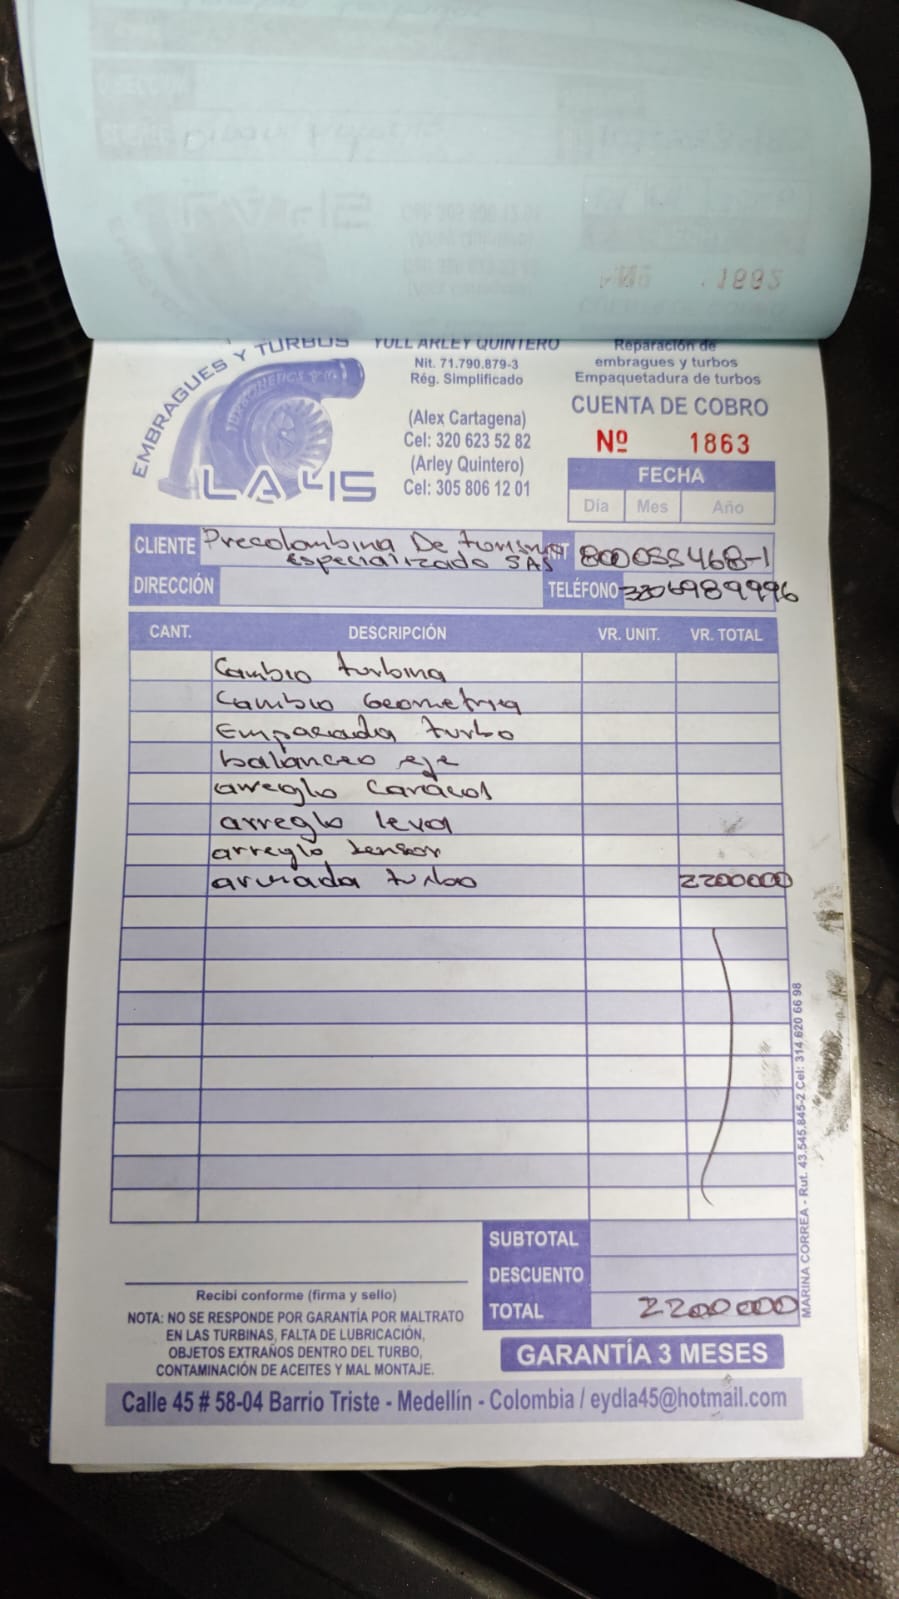 EMBRAGUES Y TURBOS
LA 45
YULL ARLEY QUINTERO
Nit. 71.790.879-3
Rég. Simplificado
(Alex Cartagena)
Cel: 320 623 52 82
(Arley Quintero)
Cel: 305 806 12 01
Reparación de
embragues y turbos
Empaquetadura de turbos
CUENTA DE COBRO
Nº 1863
FECHA
Día Mes Año
CLIENTE Precolombina De turismo
especializado SAS
NIT 800055468-1
DIRECCIÓN
TELÉFONO
CANT. DESCRIPCIÓN VR. UNIT. VR. TOTAL
Cambio turbina
Cambio Geometria
Empacada turbo
balanceo eje
arreglo Caracol
arreglo leva
arreglo sensor
armada turbo 2200000
SUBTOTAL
DESCUENTO
TOTAL 2200000
Recibi conforme (firma y sello)
NOTA: NO SE RESPONDE POR GARANTÍA POR MALTRATO
EN LAS TURBINAS, FALTA DE LUBRICACIÓN,
OBJETOS EXTRAÑOS DENTRO DEL TURBO,
CONTAMINACIÓN DE ACEITES Y MAL MONTAJE.
GARANTÍA 3 MESES
Calle 45 # 58-04 Barrio Triste - Medellín - Colombia / eydla45@hotmail.com
MARINA CORREA - Rut. 43.545.845-2 Cel: 314 620 66 98